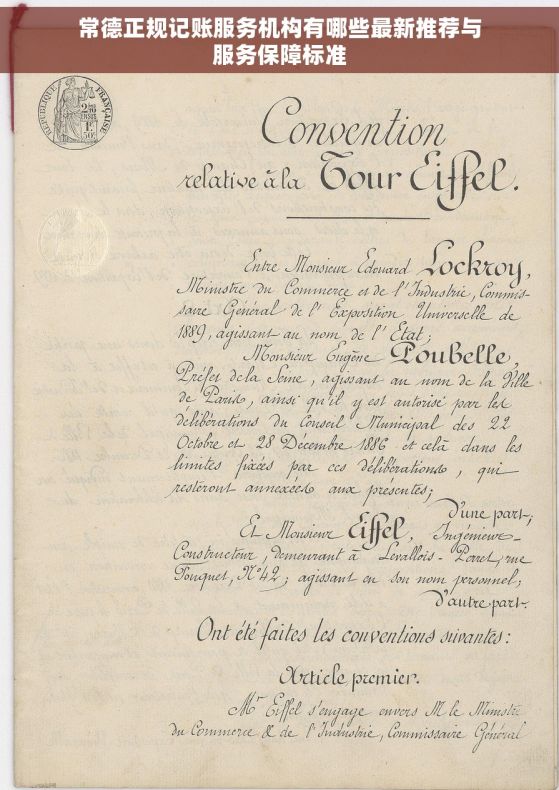 常德正规记账服务机构有哪些最新推荐与
服务保障标准
RÉPUBLIQUE FRANÇAISE
2/10
EN SUS
1F
50c
Convention
relative à la Tour Eiffel.
Entre Monsieur Edouard Lockroy,
Ministre du Commerce et de l'Industrie, Commis-
saire Général de l'Exposition Universelle de
1889, agissant au nom de l'Etat;
Monsieur Eugène Poubelle,
Préfet de la Seine, agissant au nom de la Ville
de Paris, ainsi qu'il y est autorisé par les
délibérations du Conseil Municipal des 22
Octobre et 28 Décembre 1886 et celà dans les
limites fixées par ces délibérations, qui
resteront annexées aux présentes;
d'une part;
Et Monsieur Eiffel, Ingénieur-
Constructeur, demeurant à Levallois-Perret, rue
Fouquet, N° 42; agissant en son nom personnel;
d'autre part.
Ont été faites les conventions suivantes:
Article premier.
Mr Eiffel s'engage envers M le Ministre
du Commerce & de l'Industrie, Commissaire Général